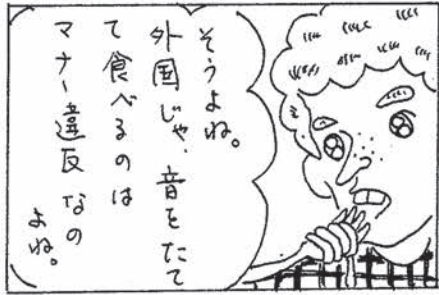 そうよね。
外国じゃ、音をたて
て食べるのは
マナー違反なの
よね。